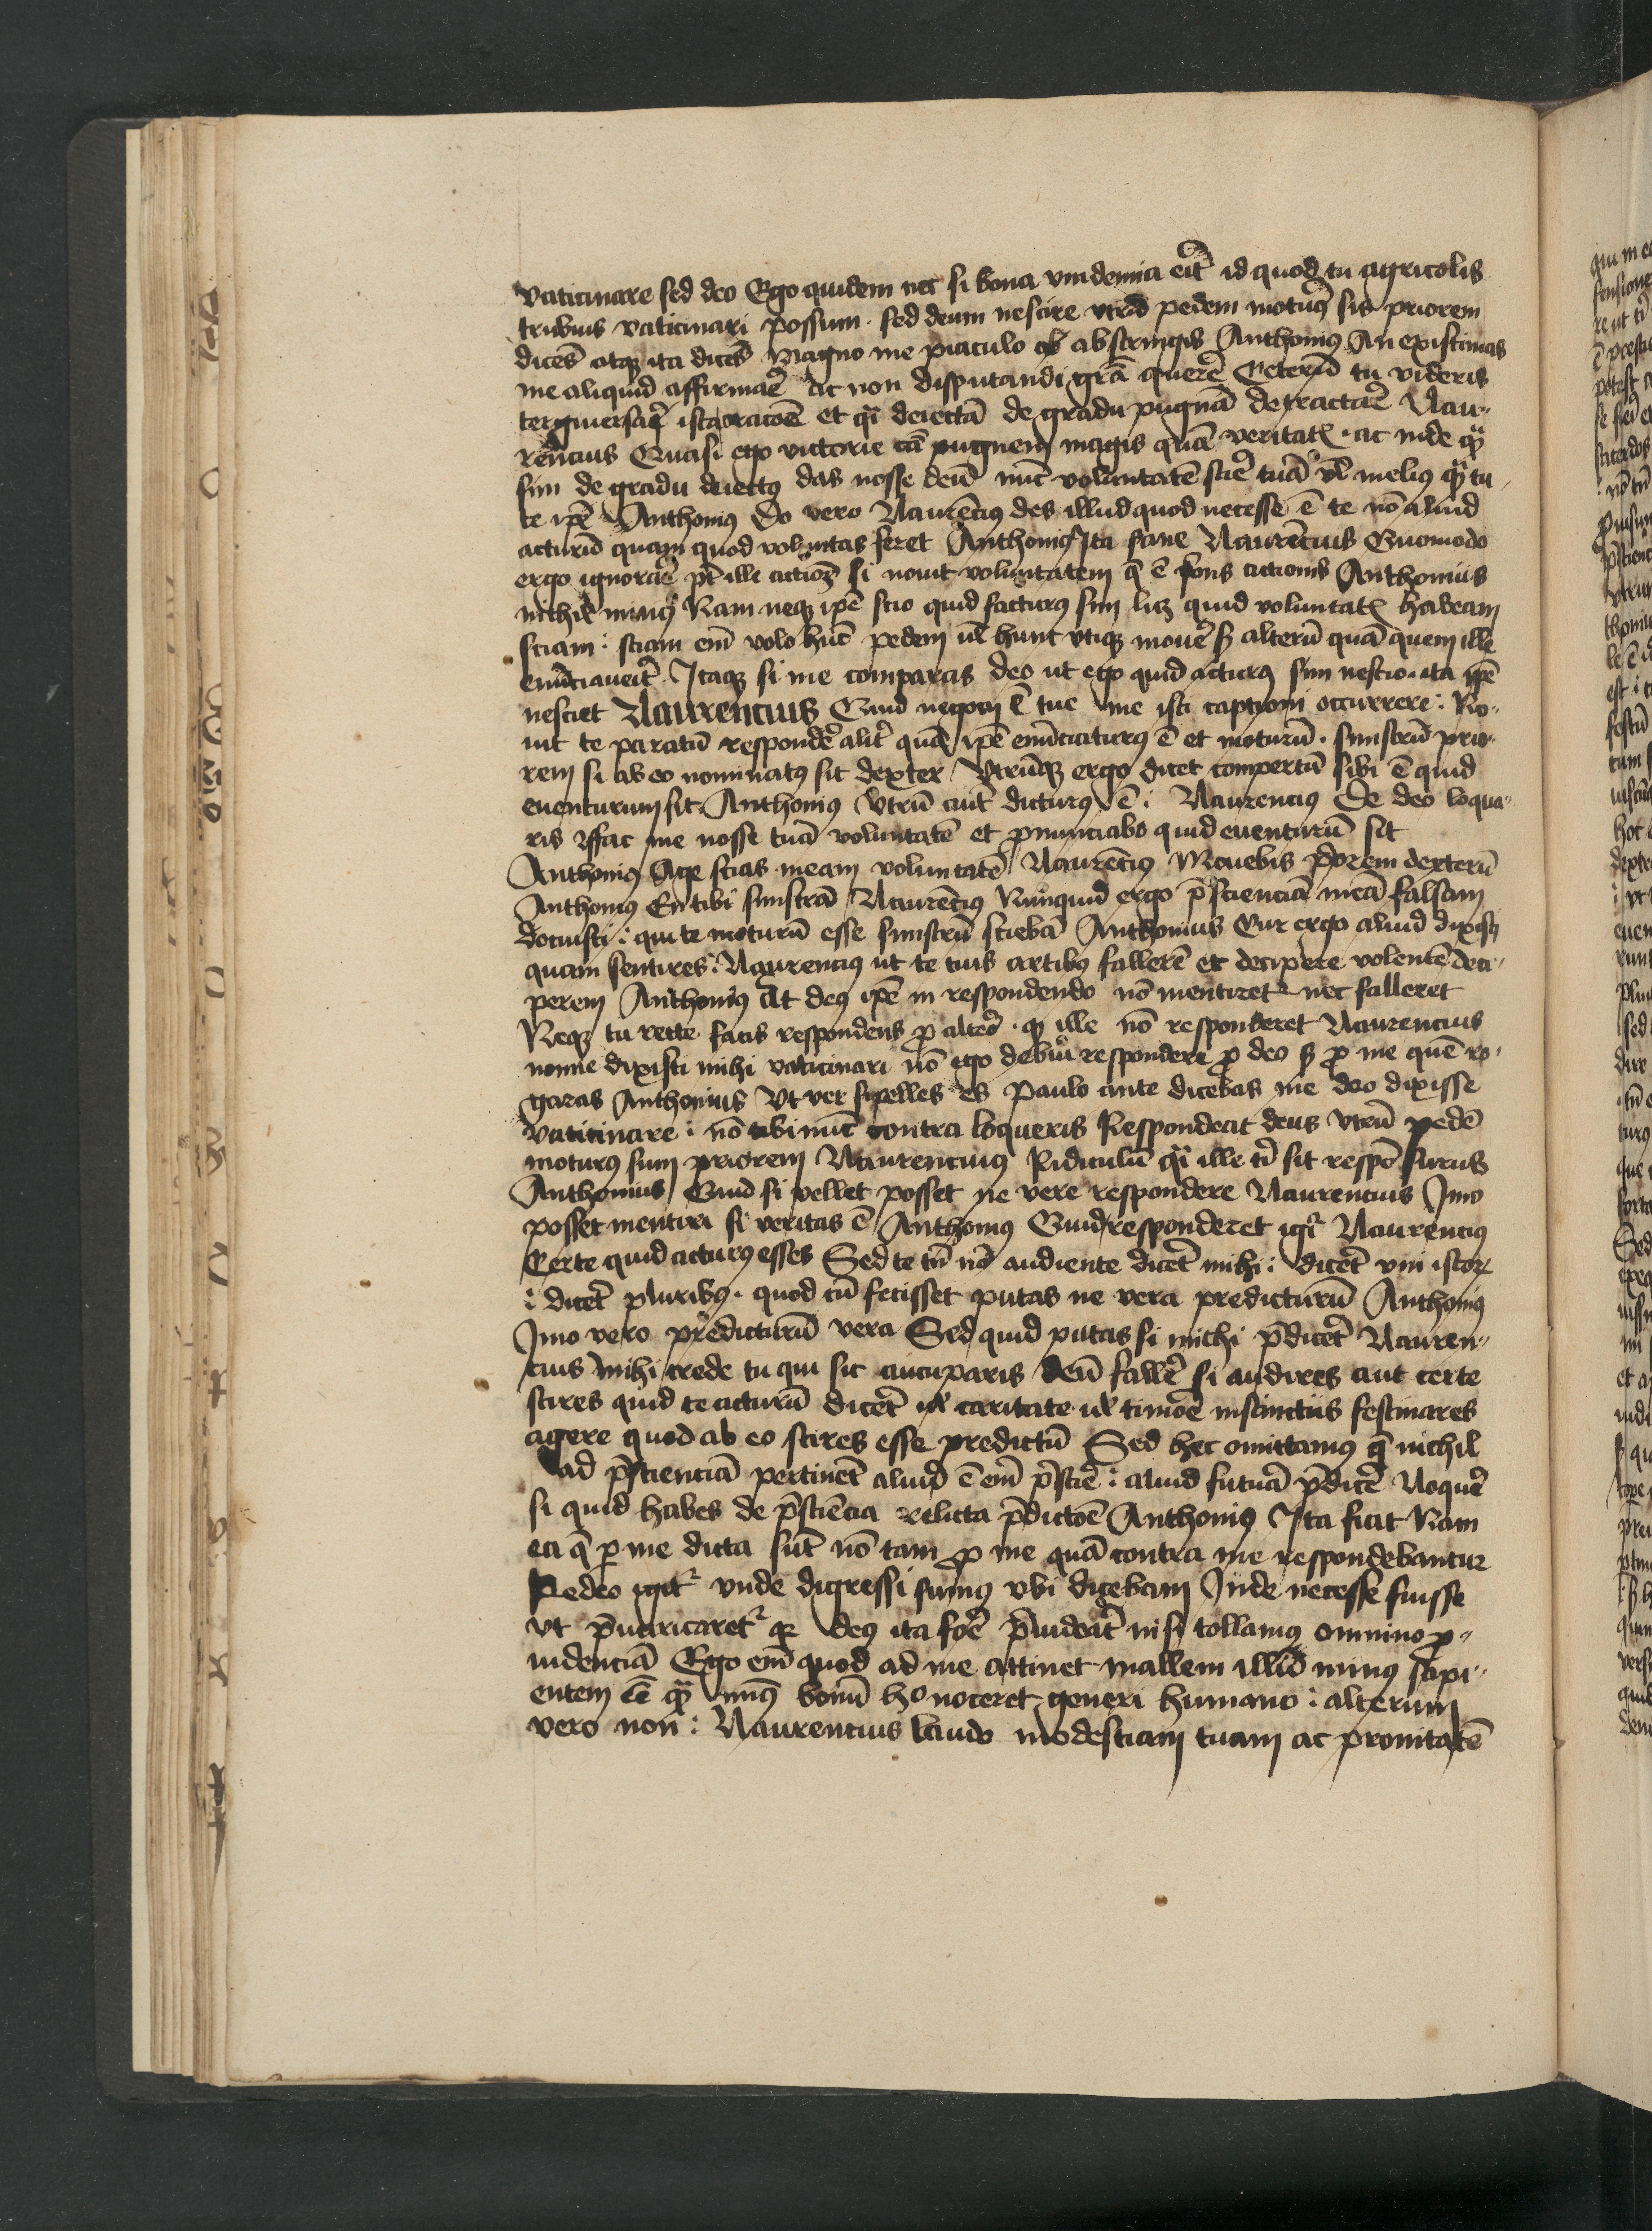 vaticinare sed deo Ego quidem nec si bona vindemia eit̃ id quod tu agricolis
tribuis vaticinari possum · sed deum nescire vtrū pedem moturꝰ sis priorem
dicēs atqꝫ ita dicēs magno me piaculo abstringis Anthoniꝰ An existimas
me aliquid affirmar̃ ac non disputandi grā quere᷑ Ceterū tu videris
tergiuersar̃ ista oracōe et qͥ deiectā de gradu pugnā detractar̃ Lau-
rēncius Quasi ego victorie cā pugnem magis quā veritatꝭ · ac inde qͣꝫ
sim de gradu deiectꝰ das nosse deū nūc voluntatē scir̃ tuā vl̃ meliꝰ qͣꝫ tu
te ipē Anthoniꝰ Do vero Laurēciꝰ des illud quod necesse ē te nō aliud
acturū quam quod voluntas feret Anthoniꝰ Ita sane Laurēcius Quomodo
ergo ignorar̃ pt̄ ille actiōꝫ si nouit voluntatem q̄ ē fons actionis Anthonius
nichil minꝰ Nam neqꝫ ipē scio quid facturꝰ sim licꝫ quid voluntatꝭ habeam
sciam : sciam em̄ volo hūc pedem vl̃ hunc vtiqꝫ mouer̃ sꝫ alterū quā quem ille
enūciauerit̃ · Itaqꝫ si me comparas deo ut ego quid acturꝰ sim nescio · ita ipē
nesciet Laurencius Quid negocij ē tue me isti captioni occurrere : No-
uit te paratū respondēr̃ alit̃ quā ipē enūciaturꝰ ē et moturū · sinistrū prio-
rem si ab eo nominatꝰ sit dexter Vtrūqꝫ ergo dicet compertū sibi ē quid
euenturum sit Anthonius Vtrū aūt dicturꝰ ē : Laurenciꝰ De deo loqua-
ris fac me nosse tuā voluntatē et p̄nunciabo quid euenturū sit
Anthoniꝰ Age scias meam voluntatē Laurēciꝰ Mouebis p̃orem dexterū
Anthoniꝰ En tibi sinistrā Laurēciꝰ Nunquid ergo p̄scienciā meā falsam
docuisti : qui te moturū esse sinistrū sciebā Anthonius Cur ergo aliud dixisti
quam sentires : Laurencius ut te tuis artibꝰ fallerē et decipere volentē deci-
perem Anthonius At deꝰ ipē in respondendo nō mentiretᷣ nec falleret
Neqꝫ tu recte facis respondens ꝓ alteō · qꝫ ille nō responderet Laurencius
nonne dixisti mihi vaticinari nō ego debui respondere ꝓ deo sꝫ ꝓ me quē ro-
garas Anthonius Vt ver sipelles es Paulo ante dicebas me deo dixisse
vaticinare : nō tibi nūc contra loqueris Respondeat deus vtrū pedē
moturꝰ sum priorem Laurencius Ridiculū qͥ ille tͥ sit respōsurus
Anthonius Quid si vellet posset ne vere respondere Laurencius Imo
posset mentiri si veritas ē Anthoniꝰ Quid responderet igiᷣ Laurenciꝰ
Certe quid acturꝰ esses Sed te tn̄ nō audiente dicēt mihi : dicēt vni istoꝝ
: dicēt pluribꝰ · quod cū fecisset putas ne vera predicturū Anthoniꝰ
Imo vero predicturū vera Sed quid putas si michi p̄dicēt Lauren-
cius mihi crede tu qui sic aucuparis deū faller̃ si audires aut certe
scires quid te acturū dicēt vl̃ caritate vl̃ timōe instinctus festinares
agere quod ab eo scires esse predictū Sed hec omittamꝰ q̄ nichil
ad p̄scienciā pertinēt aliud ē em̄ p̄scir̃ : aliud futurā p̄dicē Loquēr̃
si quid habes de p̄sciēcia relicta p̄dictōe Anthoniꝰ Ita fiat Nam
ea q̄ p me dicta sūt nō tam ꝓ me quā contra me respondebantur
Redeo igitᷣ vnde digressi sumꝰ vbi dicebam Jude necesse fuisse
vt p̄uaricaretᷣ qꝛ deꝰ ita foē p̄uideāt nisi tollamꝰ omnino ꝓ-
uidenciā Ego em̄ quod ad me attinet mallem illū minꝰ sapi-
entem ēē qͣꝫ minꝰ bonū hͦ noceret generi humano : alterum
vero non : Laurencius laudo modestiam tuam ac pronitatē